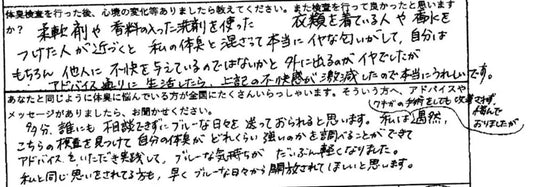 体臭検査を行った後、心境の変化等ありましたら教えてください。また検査を行って良かったと思いますか?
柔軟剤や香料の入った洗剤を使った 衣類を着ている人や香水を
つけた人が近づくと 私の体臭と混ざって本当にイヤな匂いがして、自分は
もちろん 他人に不快を与えているのではないかと外に出るのがイヤでしたが
アドバイス通りに生活したら、上記の不快感が激減したので本当にうれしいです。
あなたと同じように体臭に悩んでいる方が全国にたくさんいらっしゃいます。そういう方へ、アドバイスや
メッセージがありましたら、お聞かせください。
ワキガの手術をしても改善されず、
悩んで
おりましたが
多分、誰にも相談できずにブルーな日々を送っておられると思います。私は偶然、
こちらの検査を見つけて自分の体臭がどれくらい強いのかを調べることができて
アドバイスをいただき実践して、ブルーな気持ちがだいぶん軽くなりました。
私と同じ思いをされてる方も、早くブルーな日々から開放されてほしいと思います。